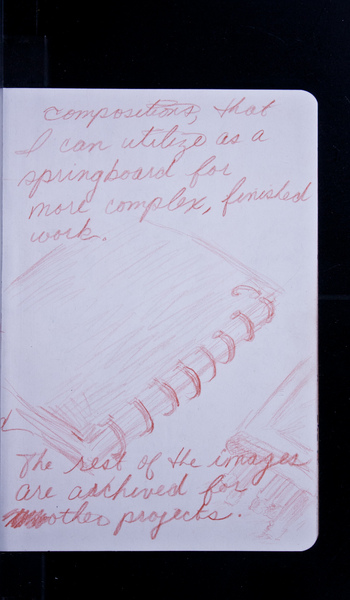 compositions, that
I can utilize as a
springboard for
more complex, finished
work.
The rest of the images
are archived for
other projects.